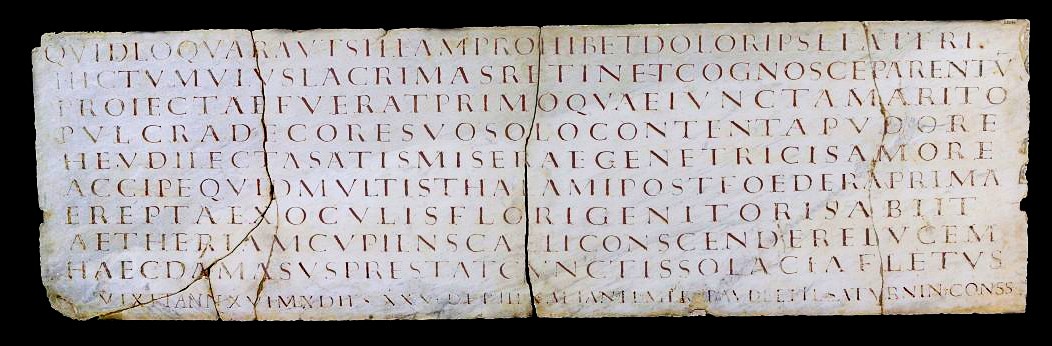 QVIDLOQVARAVTSILEAMPROHIBETDOLORIPSEFATERI
HICTVMVLVSLACRIMASRETINETCOGNOSCEPARENTV
PROIECTAEFVERATPRIMOQVAEIVNCTAMARITO
PVLCRADECORESVOSOLOCONTENTAPVDORE
HEVDILECTASATISMISERAEGENETRICISAMORE
ACCIPEQVIDMVLTISTHALAMIPOSTFOEDERAPRIMA
EREPTAEXOCVLISFLORIGENITORISABIIT
AETHERIAMCVPIENSCAELICONSCENDERELVCEM
HAECDAMASVSPRESTATCVNCTISSOLACIAFLETVS
VIXITANN·XVI·M·IX·DIES·XXV·DEP·III·KAL·IAN·FL·SATVRNIN·CONSS